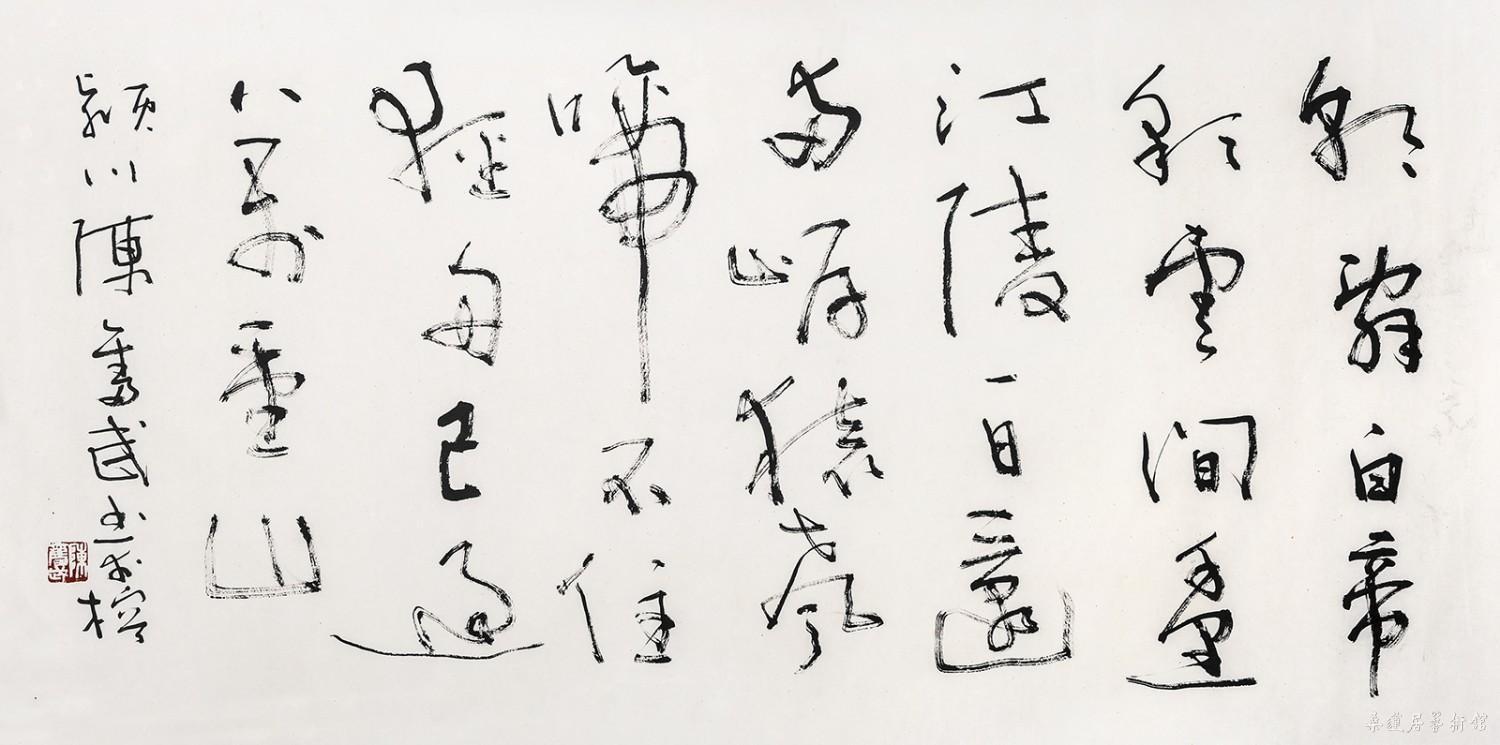 朝辭白帝
彩雲間千里
江陵一日還
兩岸猿聲
啼不住
輕舟已過
八萬重山
潁川陳奮武書於榕
陳奮武
桑蓮居藝術館